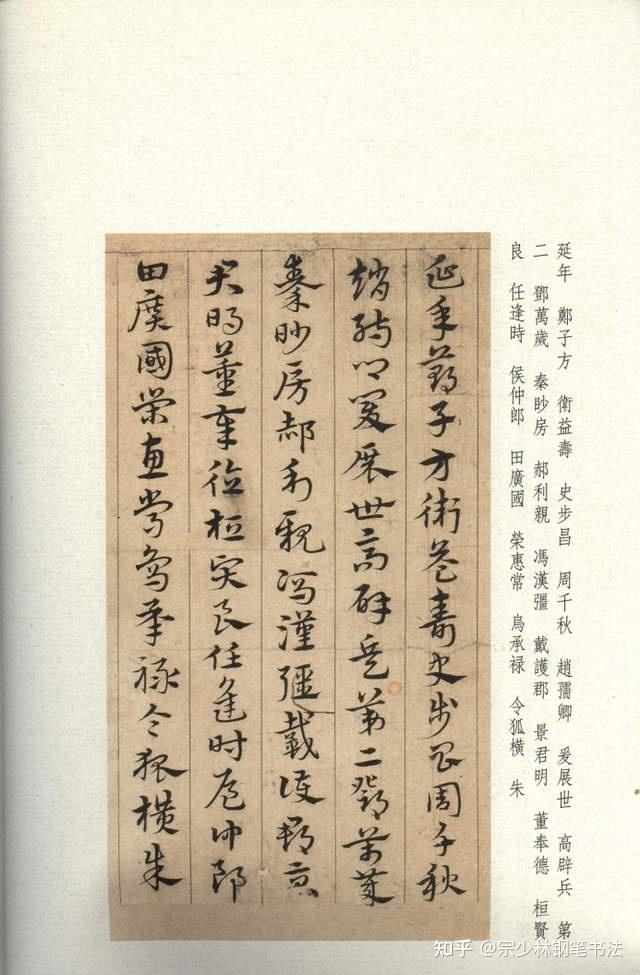 延年 鄭子方 衛益壽 史步昌 周千秋 趙孺卿 爰展世 高辟兵 第
二 鄧萬歲 秦眇房 郝利親 馮漢彊 戴護郡 景君明 董奉德 桓賢
良 任逢時 侯仲郎 田廣國 榮惠常 烏承禄 令狐橫 朱
延年鄭子方衛益壽史步昌周千秋
趙孺卿爰展世高辟兵第二鄧萬歲
秦眇房郝利親馮漢彊戴護郡景
君明董奉德桓賢良任逢時侯仲郎
田廣國榮惠常烏承禄令狐橫朱
知乎 @宗少林钢笔书法